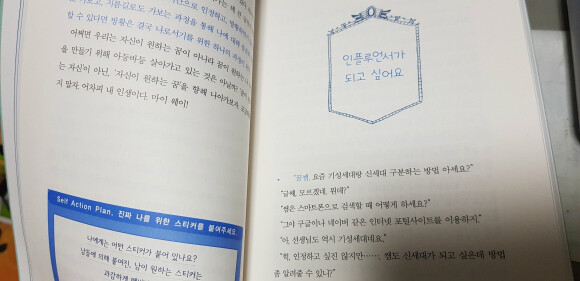 고, 지름길로도 가보는 과정을 통해 나에 대해
할 수 있다면 방황은 결국 나로서기를 위한 하나의
어쩌면 우리는 자신이 원하는 꿈이 아니라 꿈이 원하는
을 만들기 위해 아등바등 살아가고 있는 것은 아닐까?
는 자신이 아닌, '자신이 원하는 꿈'을 향해 나아가보자.
지 말자. 어차피 내 인생이다. 마이 웨이!
Self Action Plan. 진짜 나를 위한 스티커를 붙여주세요.
나에게는 어떤 스티커가 붙어 있나요?
남들에 의해 붙여진, 남이 원하는 스티커는
과감하게 떼
인플루언서가
되고 싶어요
"꿈쌤, 요즘 기성세대랑 신세대 구분하는 방법 아세요?"
"글쎄, 모르겠네. 뭔데?"
"쌤은 스마트폰으로 검색할 때 어떻게 하세요?"
"그야 구글이나 네이버 같은 인터넷 포털사이트를 이용하지."
"아, 선생님도 역시 기성세대네요."
"헉, 인정하고 싶진 않지만……, 쌤도 신세대가 되고 싶은데 방법
좀 알려줄 수 있니?"